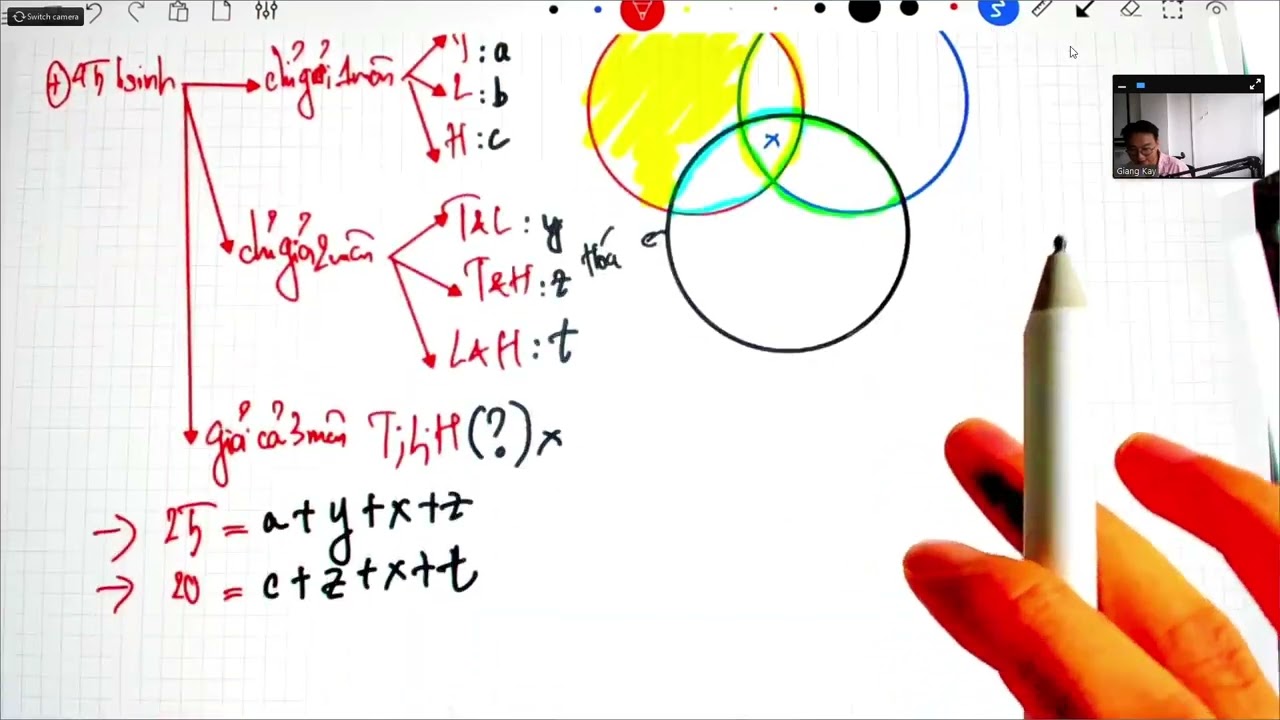 Switch camera
⊕ 45 hsinh
chỉ giỏi 1 môn
T : a
L : b
H : c
chỉ giỏi 2 môn
T&L : y
T&H : z
L&H : t
Hóa
x
giỏi cả 3 môn T;L;H (?) x
→ 25 = a + y + x + z
→ 20 = c + z + x + t
Giang Kay